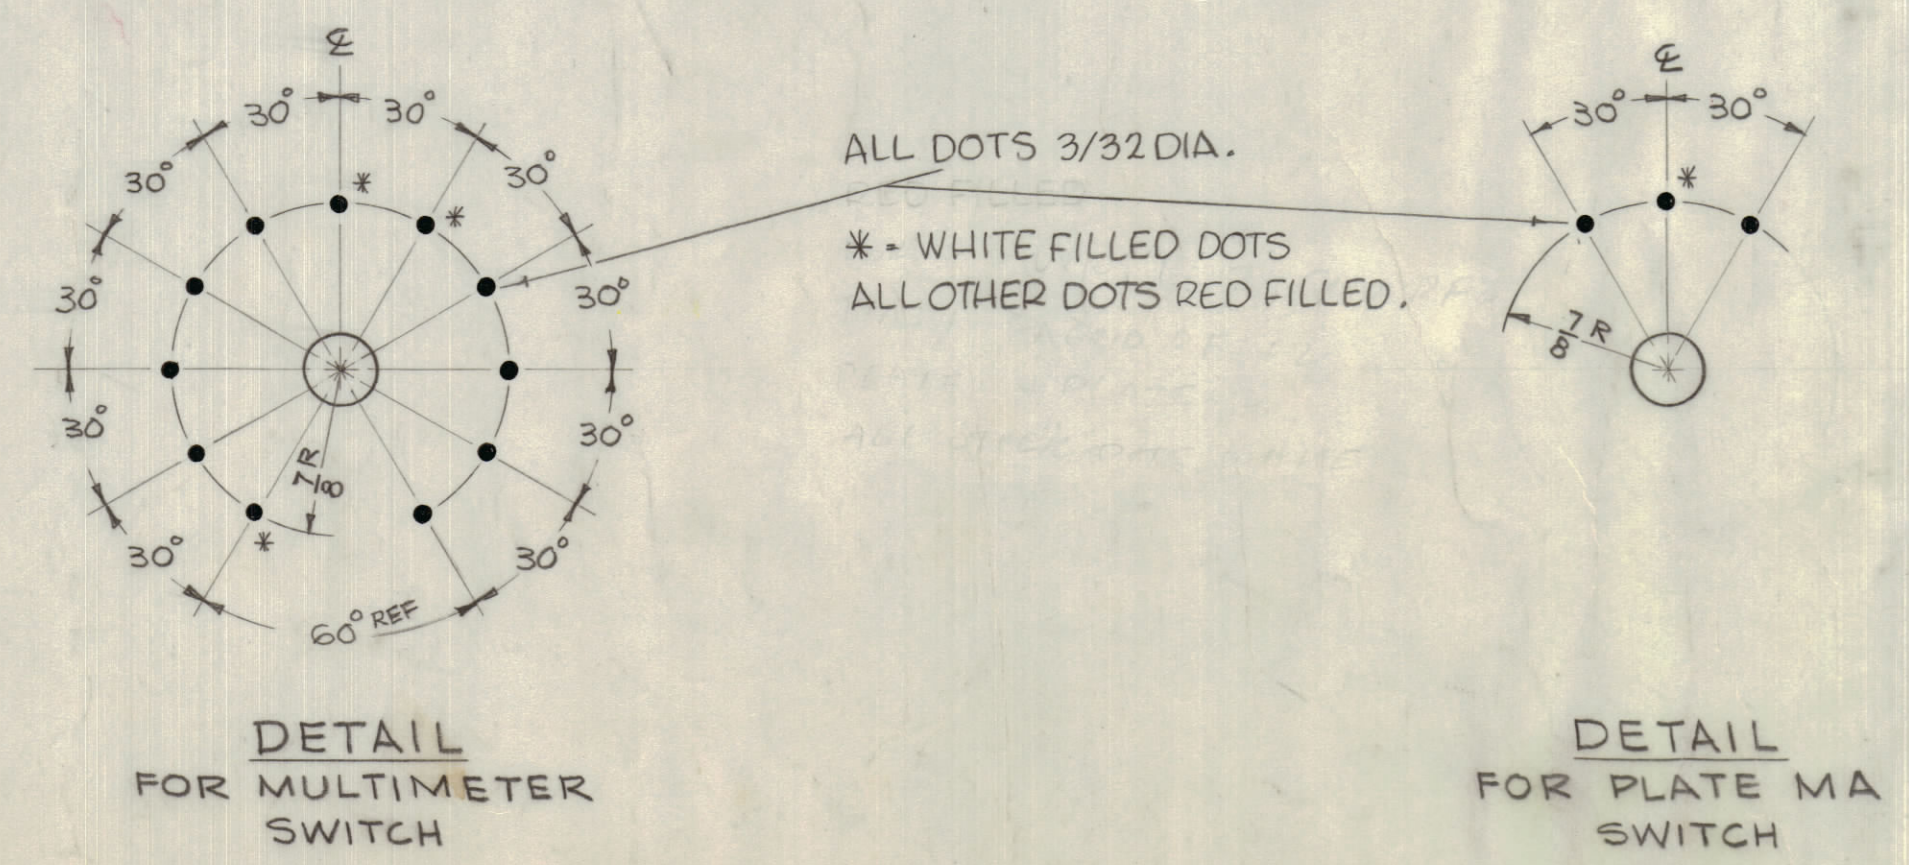 ℄
30° 30°
30° 30°
30° 30°
30° 30°
30° 30°
60° REF
7/8 R
*
*
*
DETAIL
FOR MULTIMETER
SWITCH
ALL DOTS 3/32 DIA.
RED FILLED
* = WHITE FILLED DOTS
ALL OTHER DOTS RED FILLED.
PLATE
ALL OTHER DOTS WHITE
℄
30° 30°
*
7/8 R
DETAIL
FOR PLATE MA
SWITCH